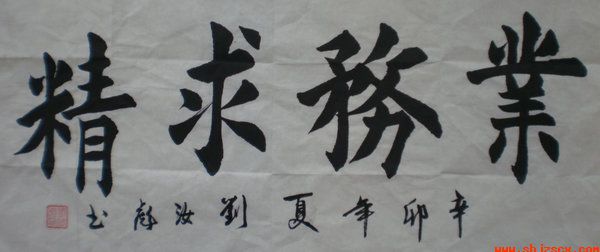 業務求精
辛卯年夏劉汝彪书
www.shjzscx.com